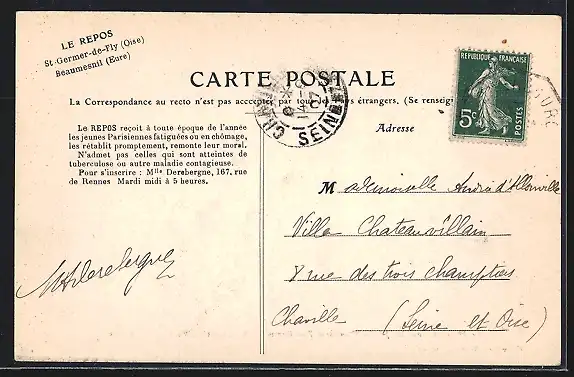 LE REPOS
St-Germer-de-Fly (Oise)
Beaumesnil (Eure)
CARTE POSTALE
La Correspondance au recto n'est pas acceptée par tous les pays étrangers. (Se renseign
Le REPOS reçoit à toute époque de l'année
les jeunes Parisiennes fatiguées ou en chômage,
les rétablit promptement, remonte leur moral.
N'admet pas celles qui sont atteintes de
tuberculose ou autre maladie contagieuse.
Pour s'inscrire : Mlle Derebergne, 167, rue
de Rennes Mardi midi à 5 heures.
Adresse
REPUBLIQUE FRANÇAISE
5c
POSTES
SEINE
Mademoiselle André d'Allonville
Villa Chateauvillain
8 rue des trois champtiers
Chaville (Seine et Oise)